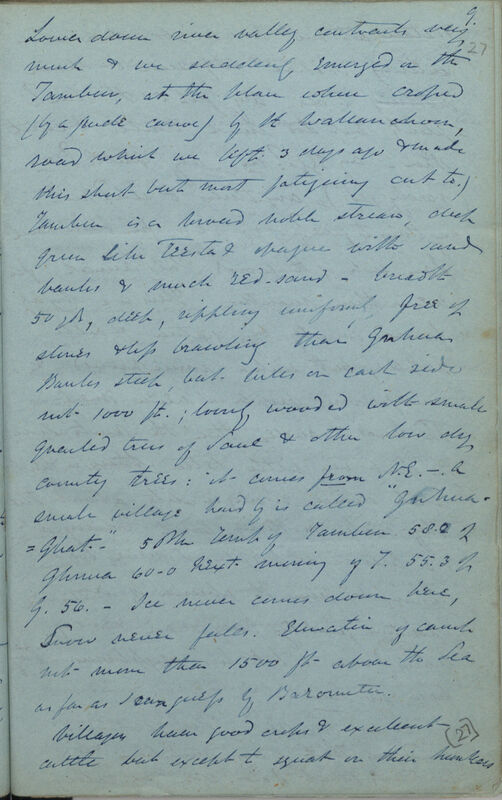 9.
27
Lower down river valley contracts very
much & we suddenly emerged on the
Tambur, at the place where crossed
(by a rude canoe) by the Wallanchoon,
road which we left 3 days ago & made
this short but most fatiguing cut to.)
Tambur is a broad noble stream, deep
green like Teesta & opaque with sand
banks & much red-sand - breadth
50 yds, deep, rippling uniformly free of
stones & less brawling than
Banks steep, but hills on each side
not 1000 ft.; loosely wooded with small
gnarled trees of Saul & other low dry
country trees: it comes from N.E. - A
small village hard by is called
=Ghat-" 5 PM Temp of Tambur 58.2 of
60-0 Next morning of T. 55.3 of
G. 56. - Ice never comes down here,
Snow never falls. Elevation of camp
not more than 1500 ft above the Sea
as far as I can guess by Barometer.
Villages have good crops & excellent
cattle but except to squat on their hunkers
(27)